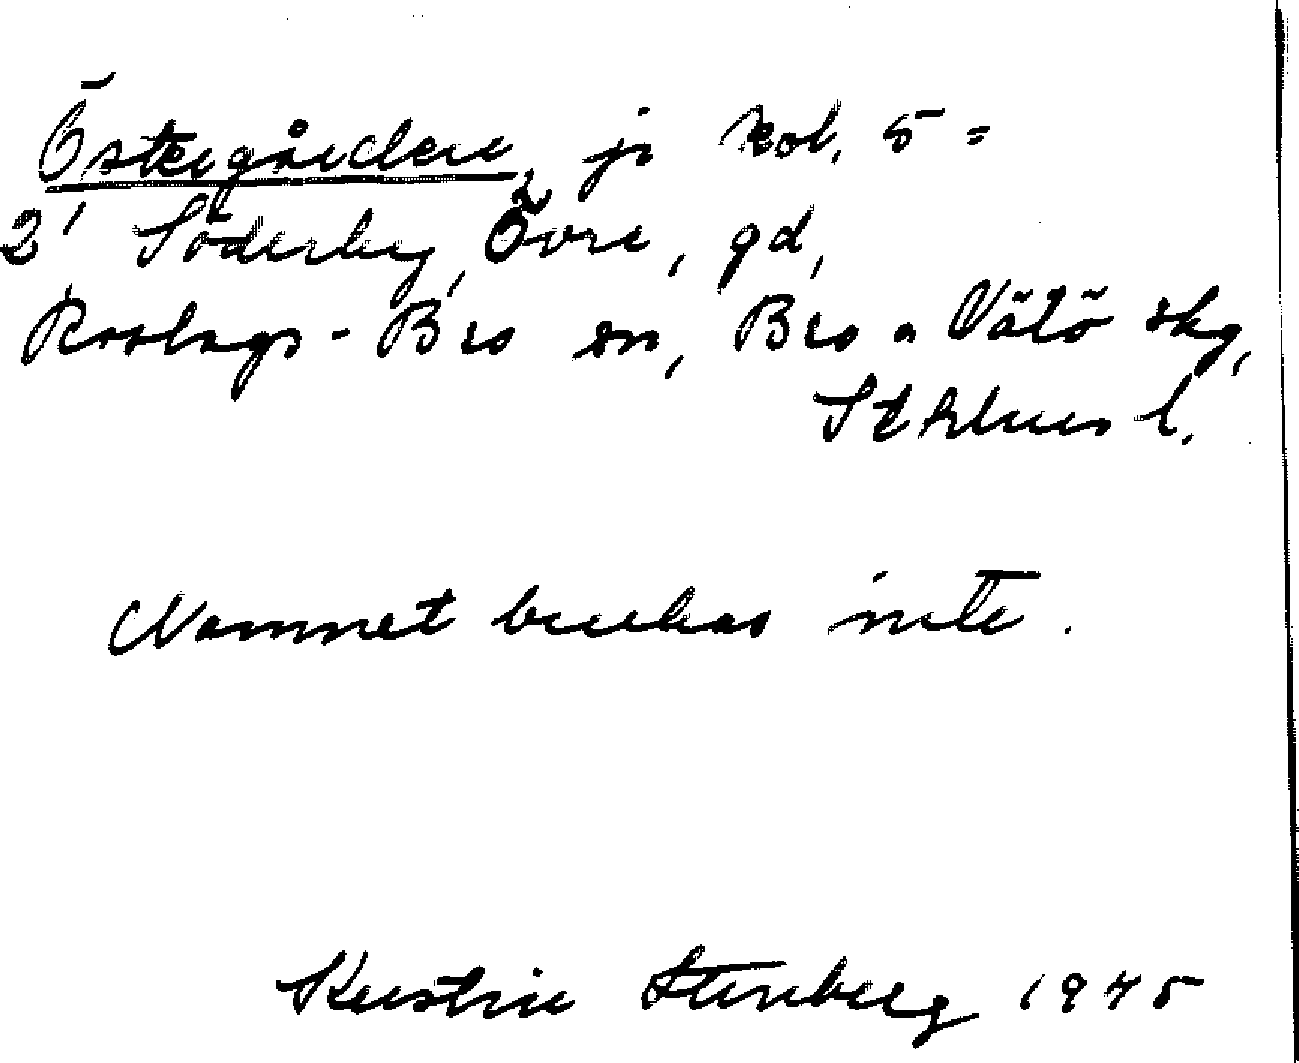 Östergården, jr kol. 5 =
2' Söderby, Övre, gd,
Roslags-Bro sn, Bro o Vätö skg,
Sthlms l.
Namnet brukas inte.
Kerstin Stenberg 1975